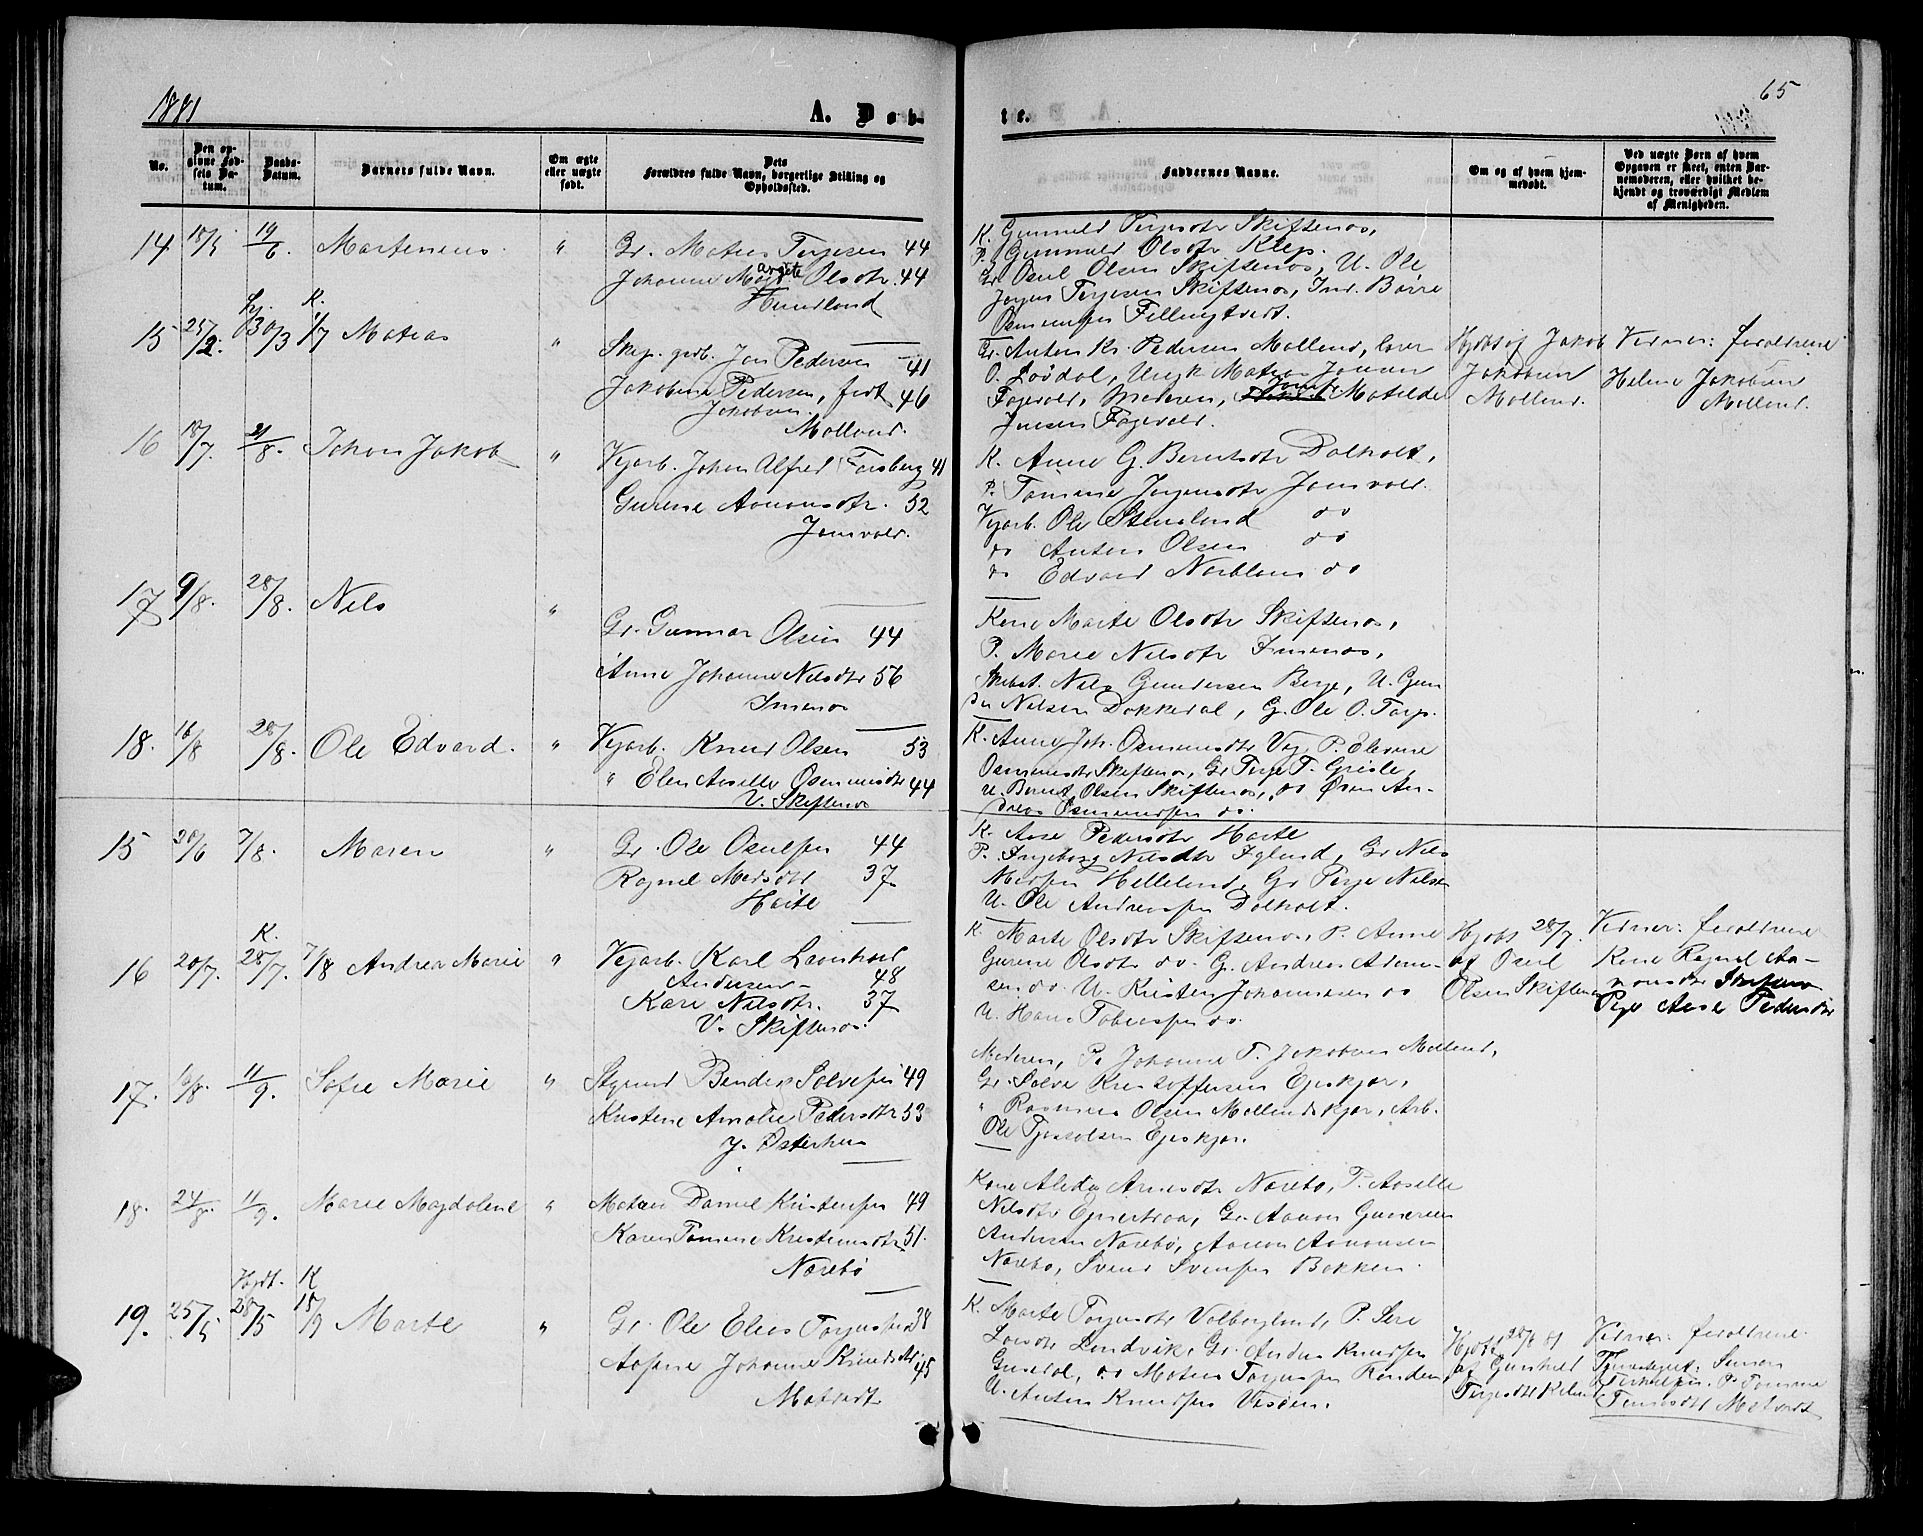 1881
A. Døb-
te.
65
No.
Den op-
givne Fød-
sels Da-
tum.
Daabs-
Datum.
Barnets fulde Navn.
Om ægte
eller uægte
født.
Dets
Forældres fulde Navn, borgerlige Stilling og
Opholdssted.
Faddernes Navne.
Om og af hvem hjem-
medøbt.
Ved uægte Børn af hvem
Opgaven er skeet, enten Bar-
nemoderen, eller hvilket be-
kjendt og troværdigt Medlem
af Menigheden.
14 18/5 19/6 Martenius " Gr. Matias Terjesen 44
Johanne Margrete Olsdtr. 44
Hundland
K. Gunnild Terjesdtr Skiftenes,
P. Gunnild Olsdtr Klep.
Gr. Osul Olsen Skiftenes, U. Ole
Jørgen Terjesen Skiftenes, Ind. Børre
Osmundsen Fillingtvedt.
15 25/2. Hj. 30/3 K. 1/7 Matias " Skip. godb. Jon Pedersen 41
Jakobine Pedersen, født 46
Jakobsen
Molland.
Gr. Anton Kr. Pedersen Molland,
O. Løvdal, Matias Jonsen
Fagevold, Moderen, Matilde
Jensen Fagevold.
Hjdøbt af Jakob
Jakobsen
Molland.
Vidner: forældrene
Helene Jakobsen
Molland.
16 18/7. 21/8. Johan Jakob " Vejarb. Johan Alfred Forsberg 41
Gurine Aanonsdtr. 52
Jomsvold.
K. Anne G. Berntsdtr Dalholt,
P. Tomine Jørgensdtr Jomsvold.
Vejarb. Ole Stensland do
do Anton Olsen do
do Edvard Norblom do
17 9/8. 28/8. Nils " Gr. Gunnar Olsen 44
Anne Johanne Nilsdtr 56
Imenes
Kone Marte Olsdtr Skiftenes,
P. Maren Nilsdtr Imenes,
Nils Gundersen Berge, U. Gun
der Nilsen Dokkedal, G. Ole O. Torp.
18. 16/8 28/8. Ole Edvard. " Vejarb. Knud Olsen 53
" Elen Aaselle Osmundsdtr 44
V. Skiftenes
K. Anne Joh. Osmundsdtr Vag, P. Elevine
Osmundsdtr Skiftenes, Gr Terje T. Grisle,
U. Bernt Olsen Skiftenes, do Øven An-
dreas Osmundsen do.
15 20/6 7/8. Maren " Gr. Ole Osulsen 44
Ragnil Madsdtr 37
Høite
K. Aase Pedersdtr Høite
P. Ingeborg Nilsdtr Igland, Gr Nils
Madsen Helleland, Gr Terje Nilsen
U. Ole Andreassen Dalholt.
16 20/7. K. 28/7. 7/8 Andrea Marie " Vejarb. Karl Leonhard
Andersen 48
Kari Nilsdtr. 37
V. Skiftenes.
K. Marte Olsdtr Skiftenes, P. Anne
Gurine Olsdtr do. G. Andreas Adam-
sen do. U. Kristen Johannesen do
U. Hans Tobiassen do.
Hjdøbt 28/7.
af Osul
Olsen Skiftenes
Vidner: forældrene
Kone Ragnil Aa-
nonsdtr Skiftenes
Pige Aase Pedersdtr
17. 16/8. 11/9. Sofie Marie " Styrmd Bendix Salvesen 49
Kristine Amalie Pedersdtr 53
y. Østerhus
Moderen, P. Johanne T. Jakobsen Molland,
Gr. Salve Kristoffersen Egeskjær,
" Rasmus Olsen Mollandskjær, Arb.
Ole Tjøstolsen Egeskjær.
18. 24/8. 11/9. Marie Magdalene " Matros Daniel Kristensen 49
Karen Tomine Kristensdtr 51.
Narebø
Kone Alida Arnesdtr Narebø, P. Aaselle
Nilsdtr, Gr. Aanon Gunerius
Andersen Narebø, Aanon Aanonsen
Narebø, Svend Svensen Bakken.
19. 25/5 Hjdt. 28/5 K 18/9 Marte " Gr. Ole Elias Torgersen 38
Aasine Johanne Knudsdtr 45
Matvedt
K. Marte Torgersdtr Valberglund, P. Siri
Larsdtr Lindvik, Gr. Anders Knudsen
Gusdal, do Matias Torgersen Randen
U. Anton Knudsen Vesøen.
Hjdøbt 28/5 81
af Gunhild
Terjesdtr
Vidner: forældrene.
Simon
Terkelsen, P. Tomine
Tomasdtr Matvedt